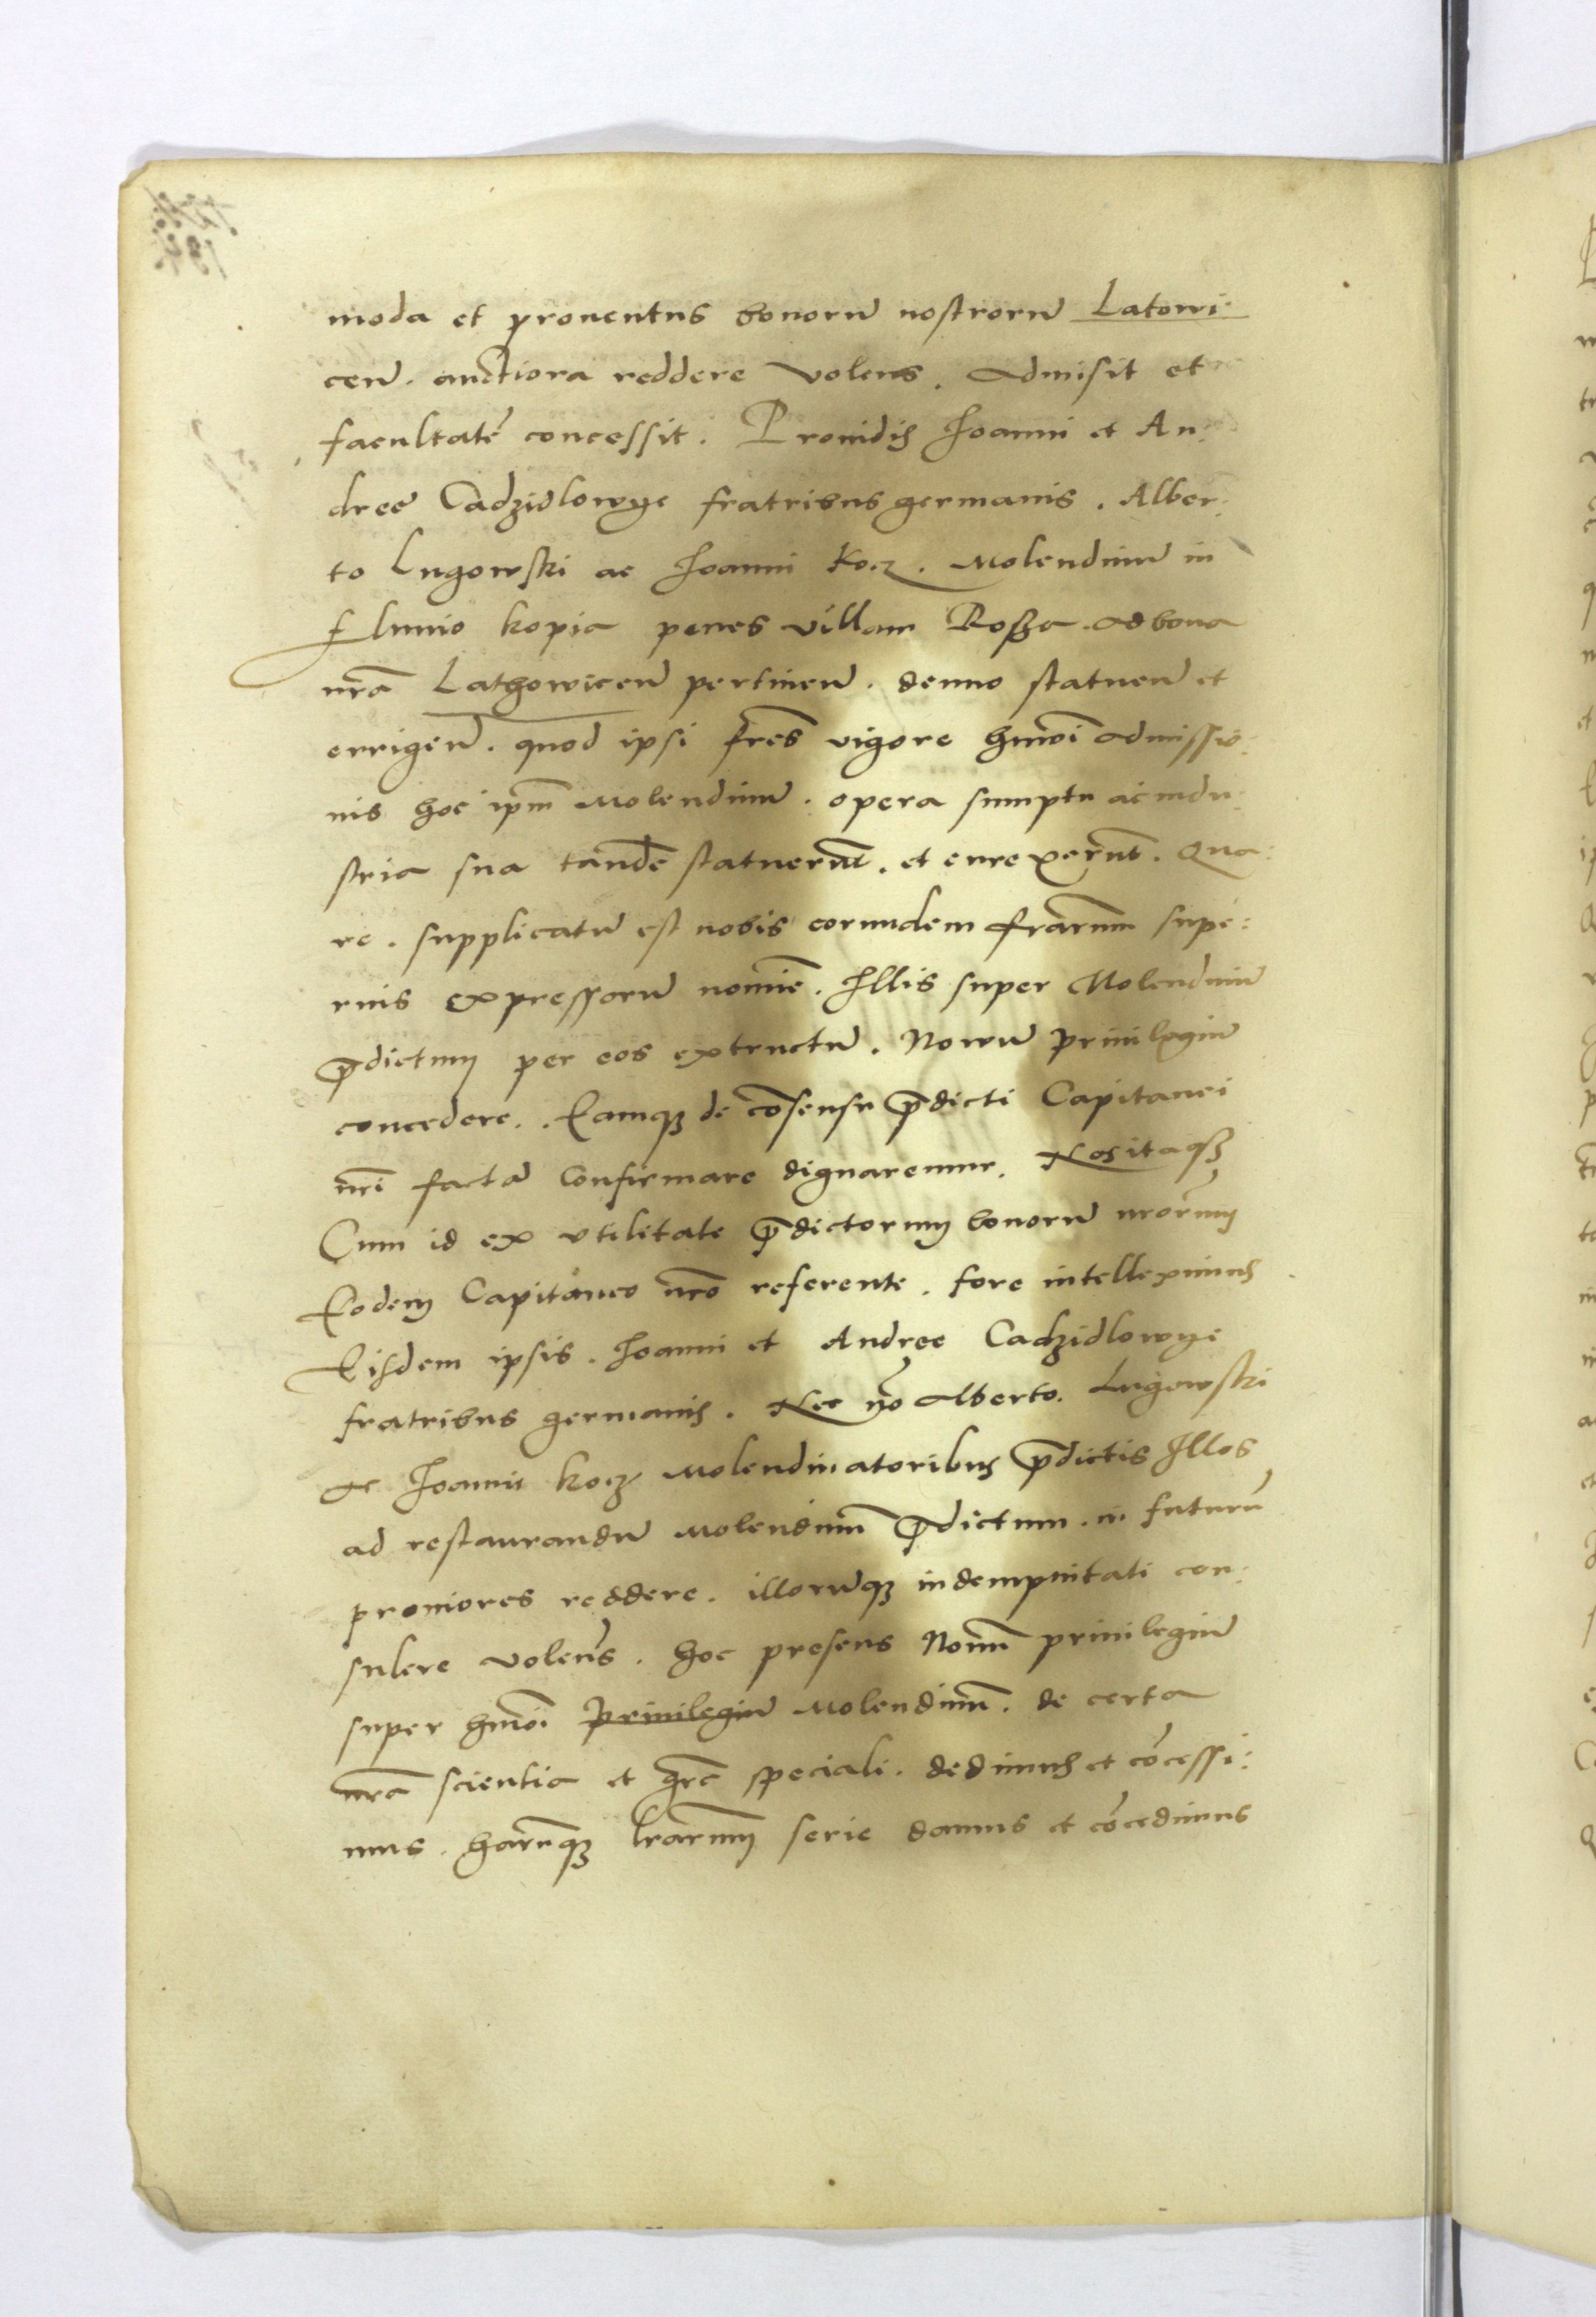 moda et prouentus bonorū nostrorū Latowi
ceñ. auctiora reddere volens. Admisit et
facultatē concessit. Prouidis Joanni et An:
dree Cadzidlowye fratribus germanis. Alber:
to Lugowski ac Joanni Kocz. Molendinū in
fluuio kopia penes villam Rosza ad bona
nrā Lathowiceñ pertineñ. denuo statueñ et
errigeñ. quod ipsi frēs vigore hmōi admissio:
nis hoc ipm̄ Molendinū. opera sumptu ac indu:
stria sua tandē statuerūt. et erexerūt. Qua:
re. supplicatū est nobis eorundem frārum supe:
rius expressorū nomīe. Illis super Molendinū
p̄dictum per eos extructū. Nowū priuilegiū
concedere. Eamqꝫ de cōsensu p̄dicti Capitanei
nrī factā Confirmare dignaremur. Nos itaqꝫ
Cum id ex vtilitate p̄dictorum bonorū nrōrum
Eodem Capitaneo nrō referente. fore intelleximus
Eisdem ipsis. Joanni et Andree Cadzidlowye
fratribus germanis. Nec nō Alberto. Lugowski
ac Joanni Kocz Molendinatoribus p̄dictis Illos
ad restaurandū Molendinū p̄dictum. in futurū
proniores reddere. illorūqꝫ indempnitati con:
sulere volens. hoc presens Nouū priuilegiū
super hmōi priuilegiū Molendinū. de certa
nrā scientia et grā speciali. dedimus et cōcessi:
mus. harūqꝫ lrārum serie damus et cōcedimus